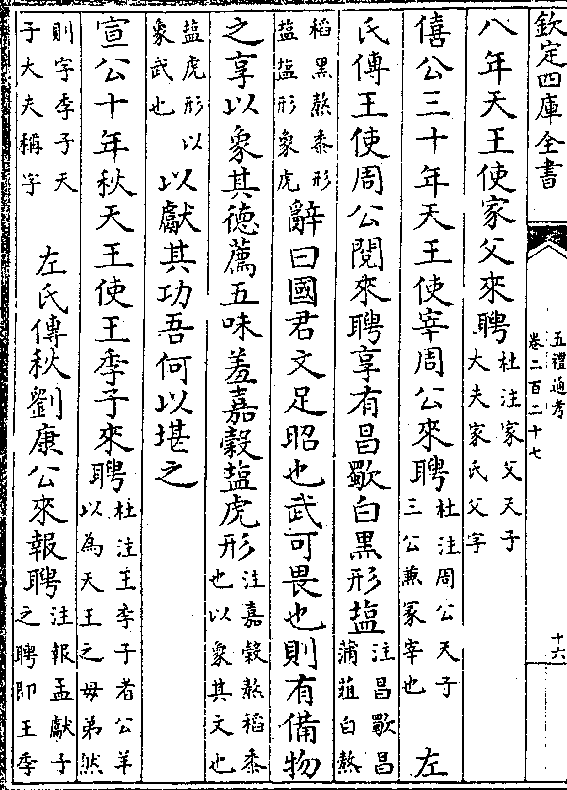 欽定四庫全書
五禮通考
卷二百二十七
十六
八年天王使家父來聘杜注家父天子大夫家氏父字
僖公三十年天王使宰周公來聘杜注周公天子三公兼冡宰也 左
氏傳王使周公閱來聘享有昌歜白黑形塩注昌歜昌蒲葅白熬
稻黑熬黍形塩塩形象虎辭曰國君文足昭也武可畏也則有備物
之享以象其德薦五味羞嘉穀塩虎形注嘉穀熬稻黍也以象其文也
塩虎形以象武也以獻其功吾何以堪之
宣公十年秋天王使王季子來聘杜注王季子者公羊以為天王之母弟然
則字季子天子大夫稱字 左氏傳秋劉康公來報聘注報孟獻子之聘即王季